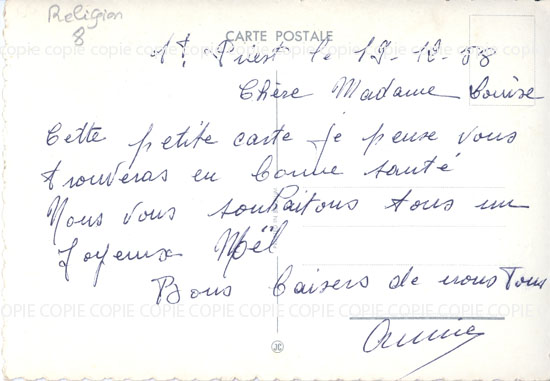 Religion
8
CARTE POSTALE
St. Priest le 19-12-58
Chère Madame Louise
Cette petite carte je pense vous
trouveras en bonne santé
Nous vous souhaitons tous un
Joyeux Noël
Bons baisers de nous Tous
Annie
COPIE COPIE COPIE COPIE COPIE COPIE COPIE COPIE COPIE COPIE COPIE COPIE